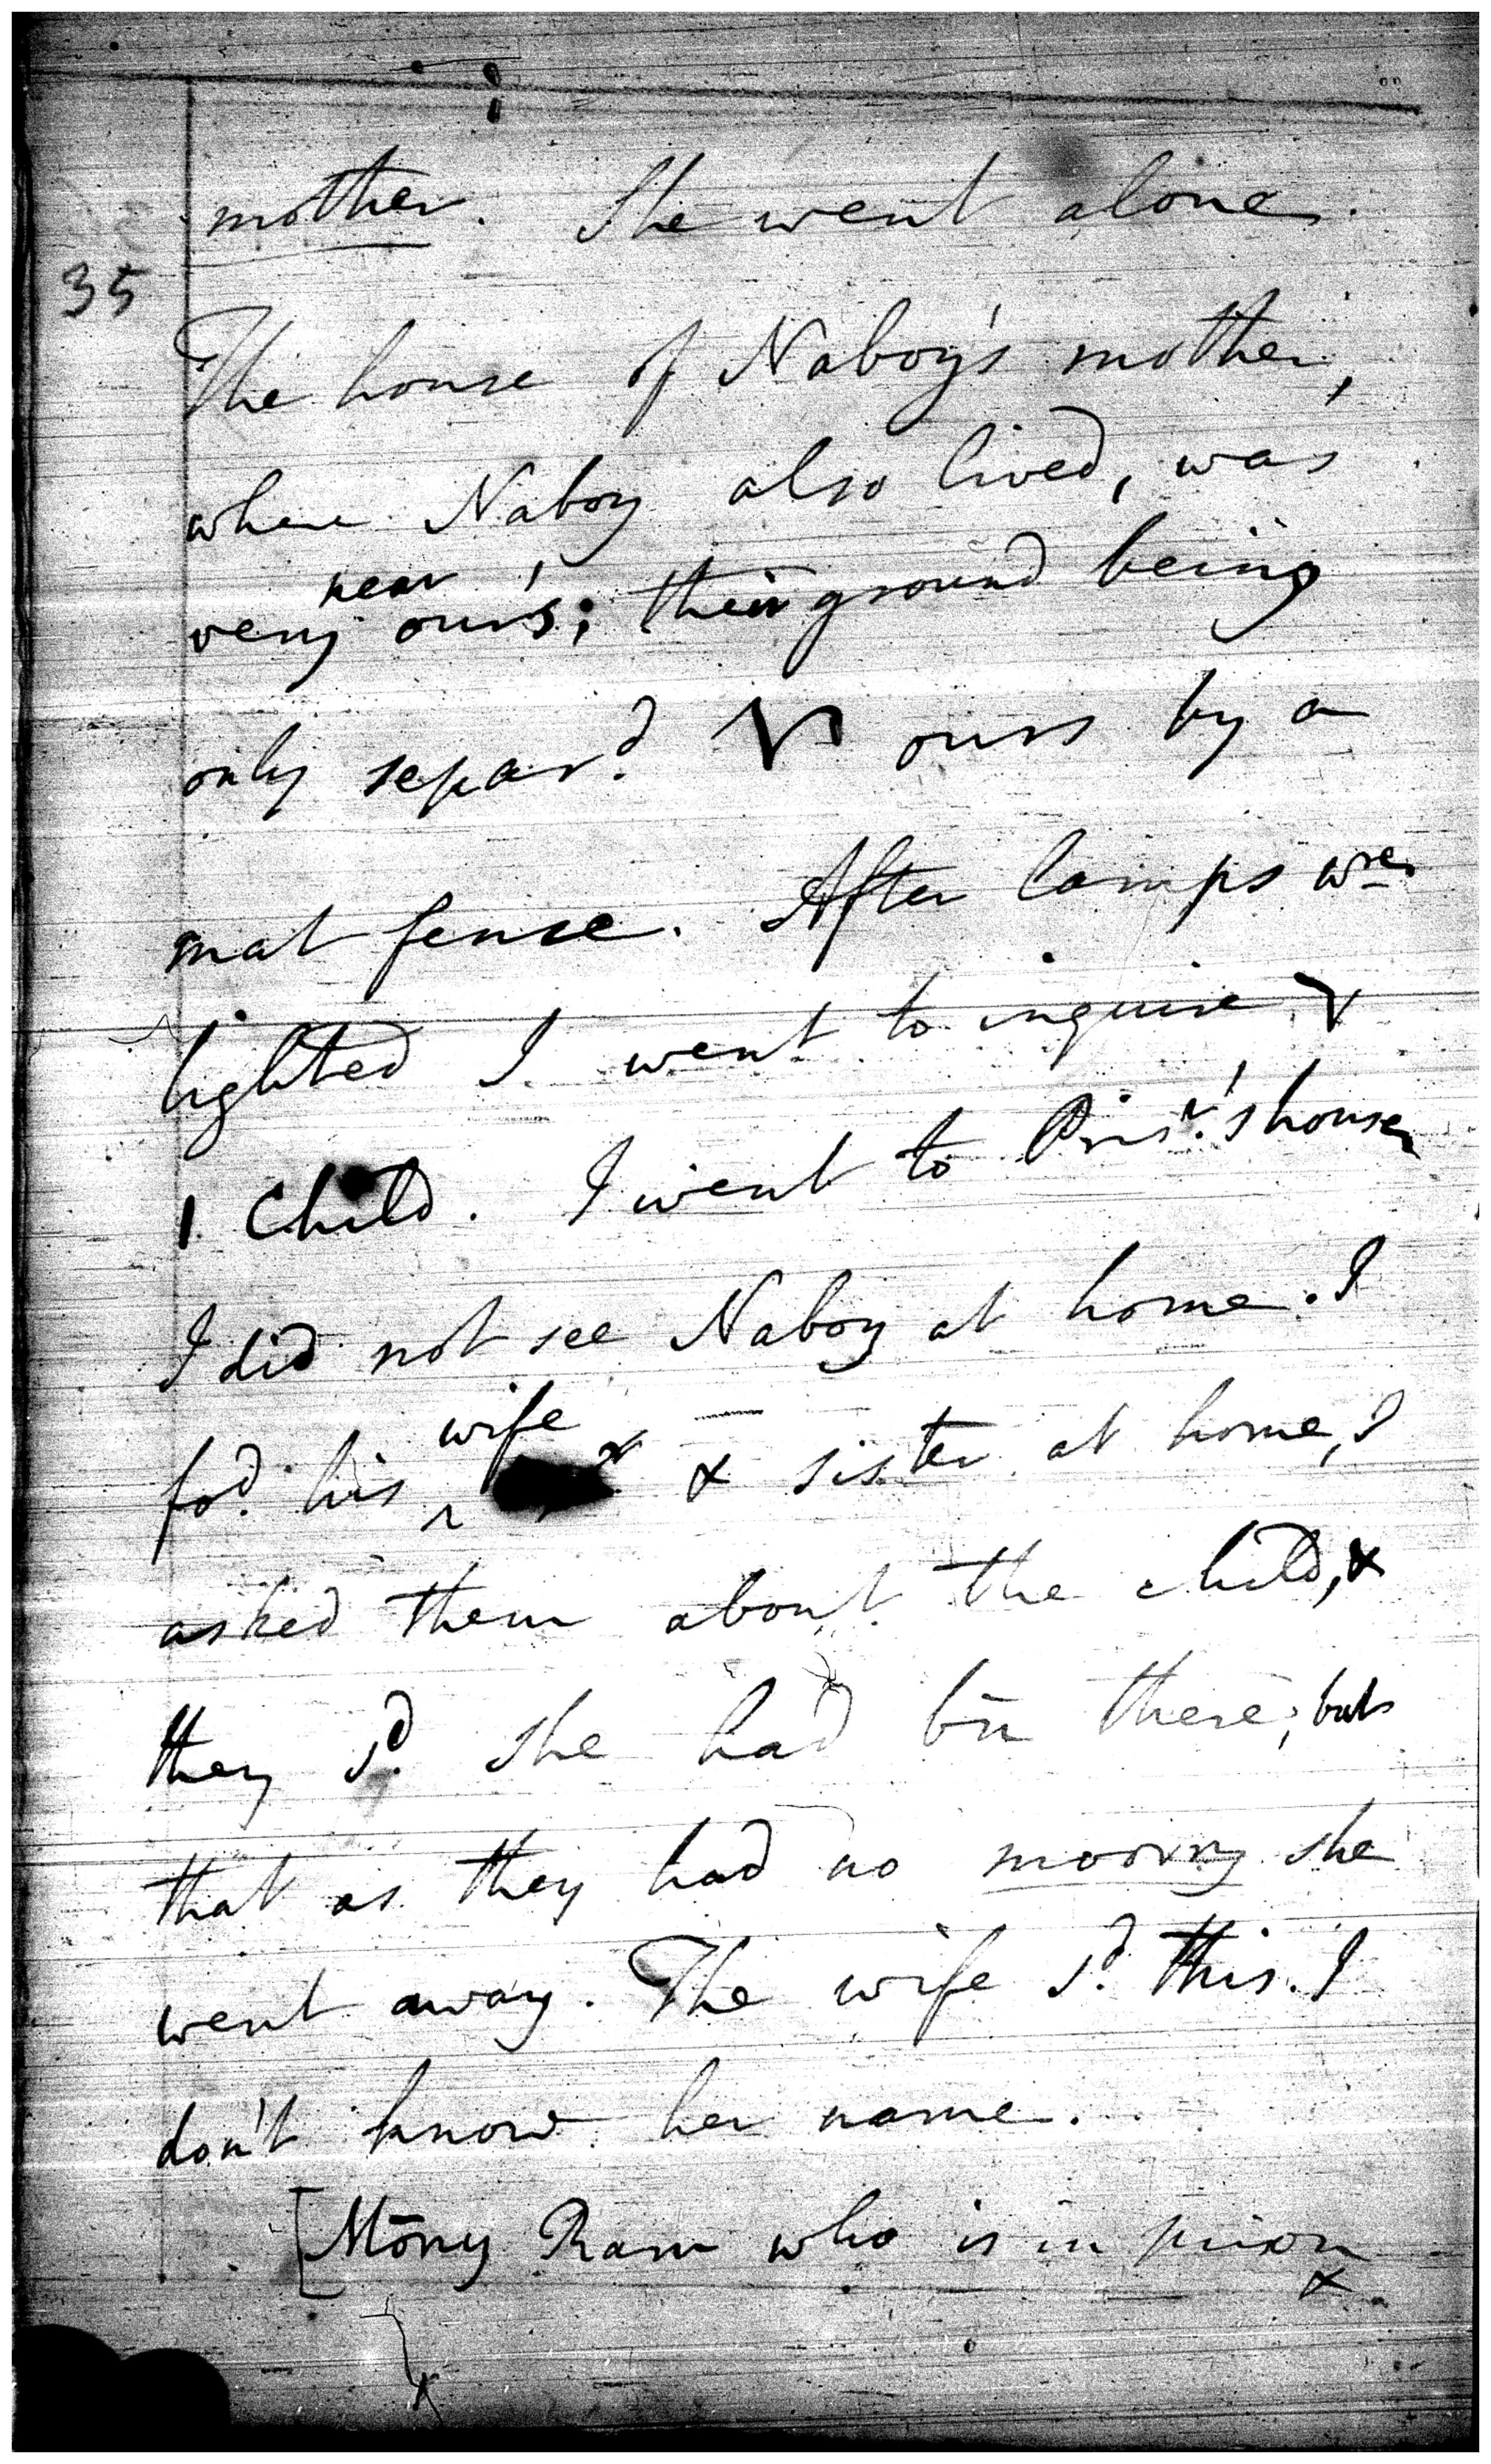 mother. She went alone.
35
The house of Naboy's mother,
where Naboy also lived, was
near
very our's; their ground being
only separd. ours by a
mat fence. After lamps wre
lighted I went to inquire
Child. I went to Prisr.'s house
I did not see Naboy at home. I
wife
fod. his & sister at home, I
asked them about the child, &
they sd. she had bn there; but
that as they had no moorry she
went away. The wife sd. this. I
don't know her name.
[Mony Ram who is in prison